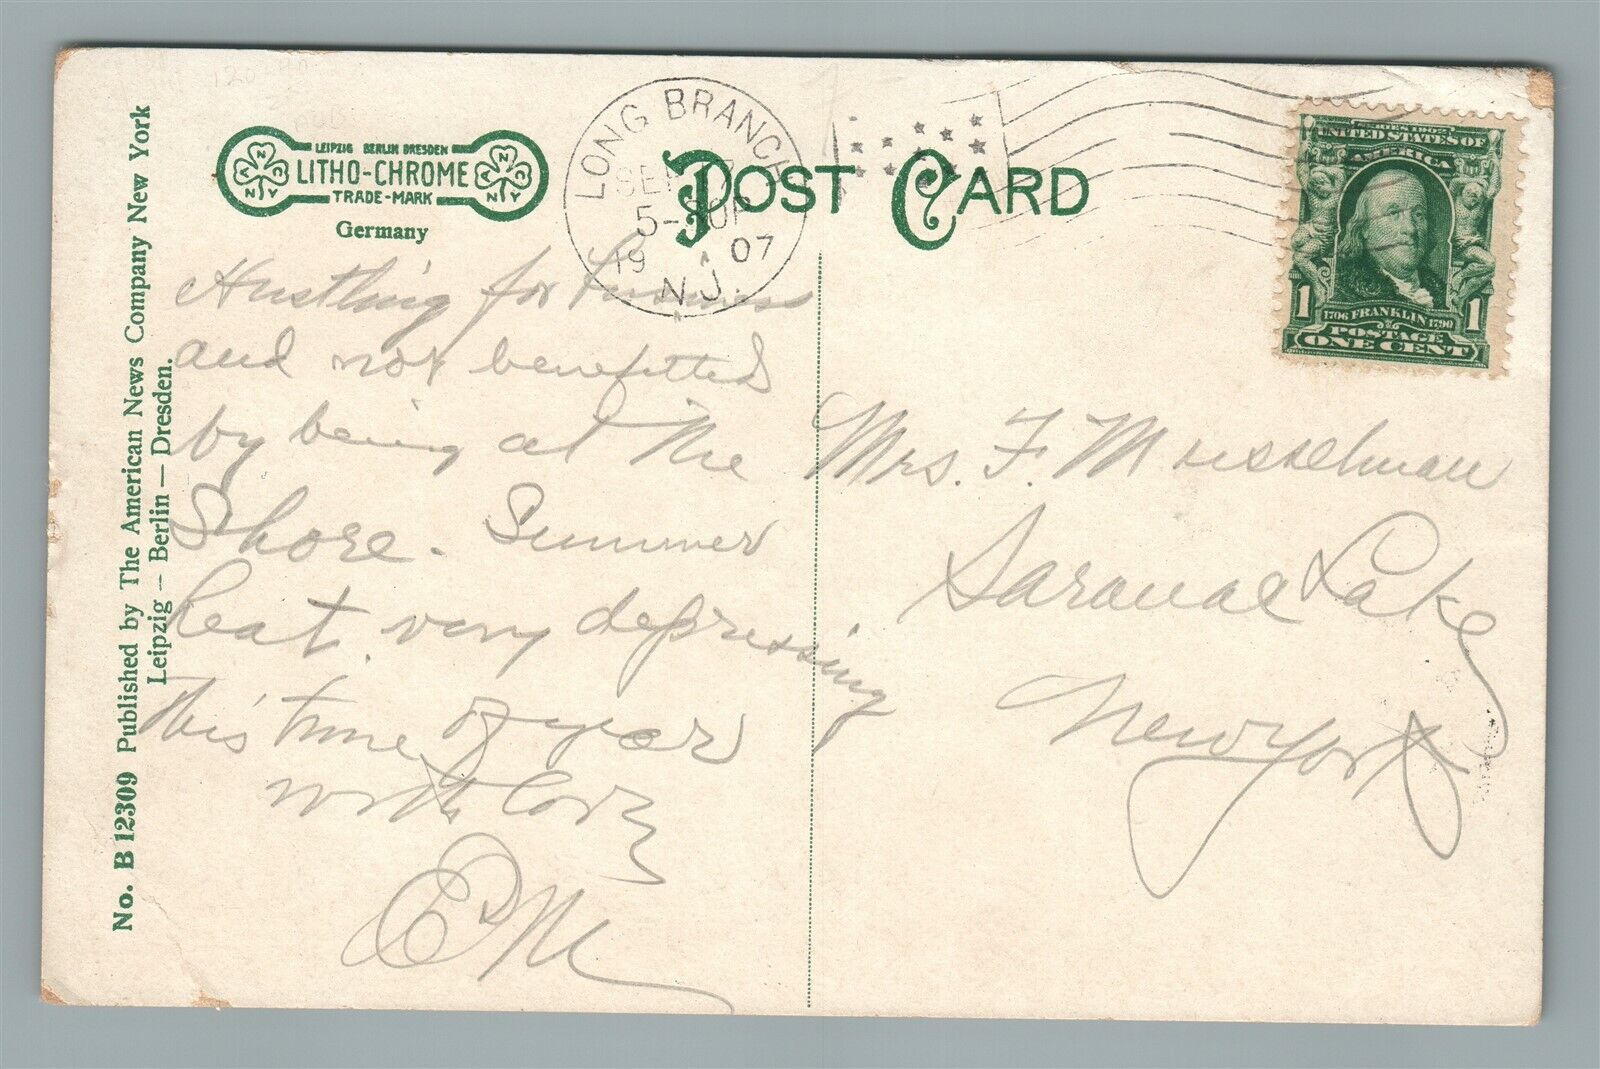 LEIPZIG BERLIN DRESDEN
LITHO-CHROME
TRADE-MARK
Germany
LONG BRANCH
SEP 7
5-30P
1907
N.J.
POST CARD
SERIES 1902
UNITED STATES OF
AMERICA
1 1
1706 FRANKLIN 1790
POSTAGE
ONE CENT
No. B 12309 Published by The American News Company New York
Leipzig – Berlin – Dresden.
Hustling for business
and not benefitted
by being at the
Shore. Summer
heat very depressing
this time of year
with love
EM
Mrs. F. Musselman
Saranac Lake
New York